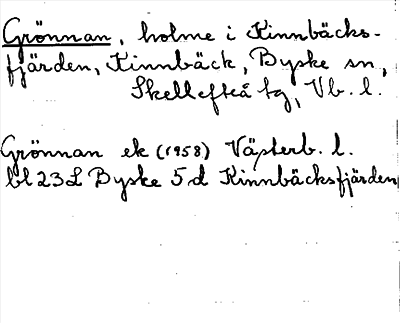 Grönnan, holme i Kinnbäcks-
fjärden, Kinnbäck, Byske sn,
Skellefteå tg, Vb. l.
Grönnan ek (1958) Västerb. l.
bl 23 L Byske 5 d Kinnbäcksfjärden